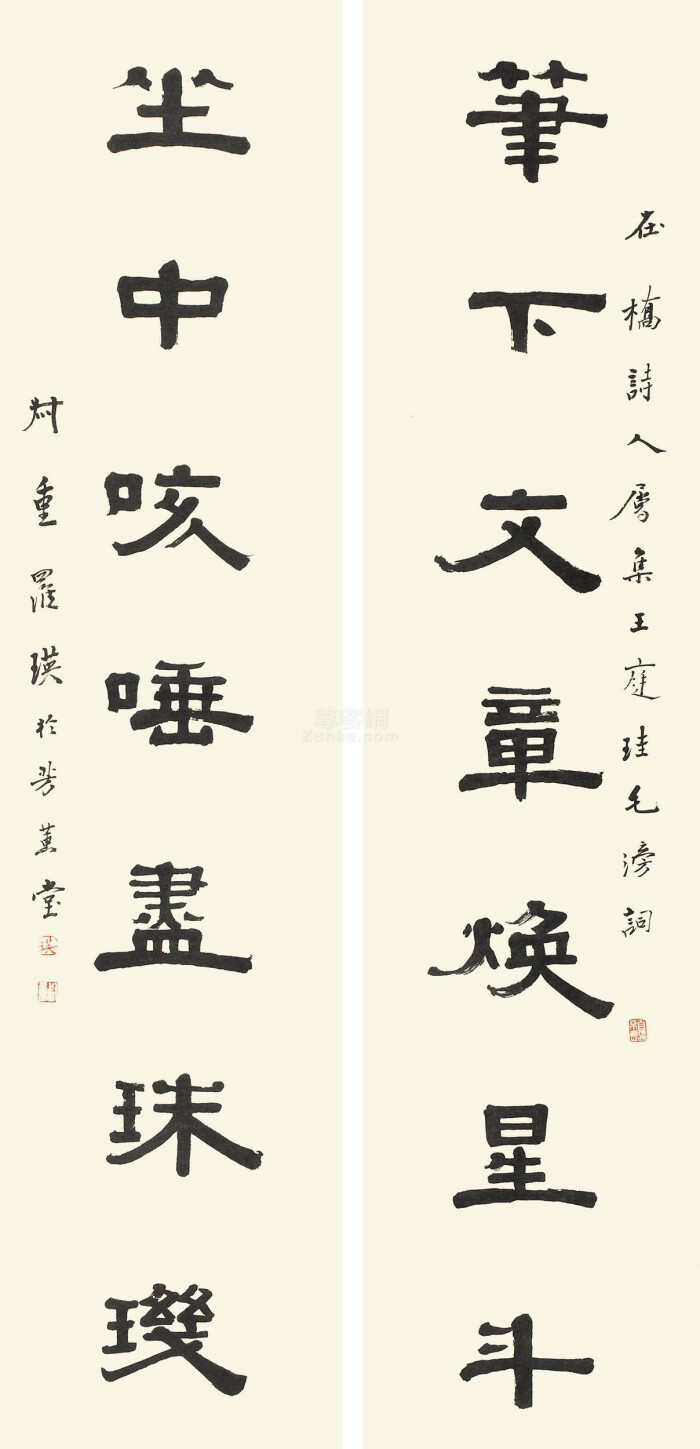 在橋詩人屬集王庭珪毛滂詞
筆下文章煥星斗
坐中咳唾盡珠璣
重羅瑛於芳薰堂
尊客網
Zunke.com